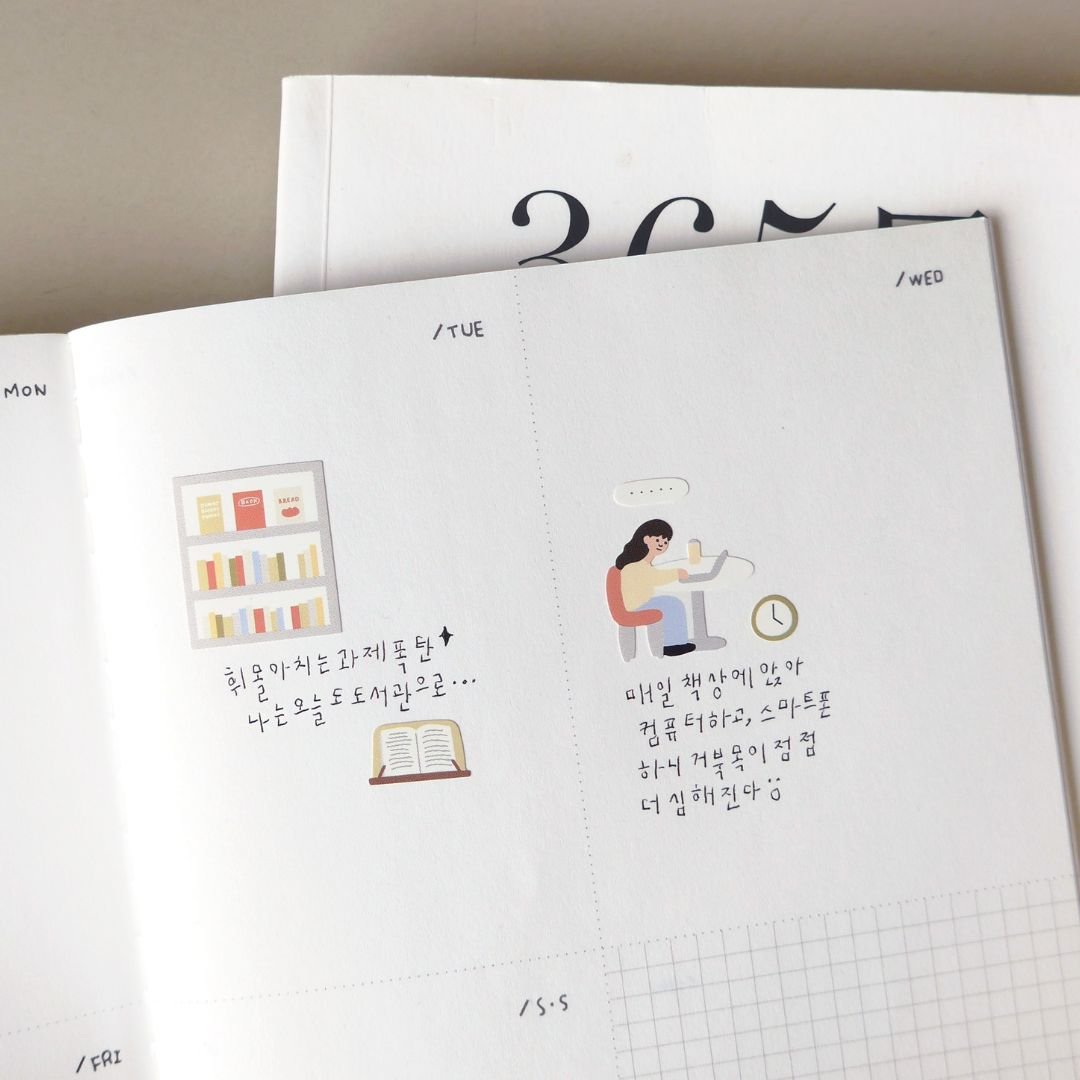 365
/WED
/TUE
MON
BOOK
BREAD
.....
휘몰아치는 과제폭탄
나는 오늘도 도서관으로...
매일 책상에 앉아
컴퓨터하고, 스마트폰
하니 거북목이 점점
더 심해진다
/S·S
/FRI